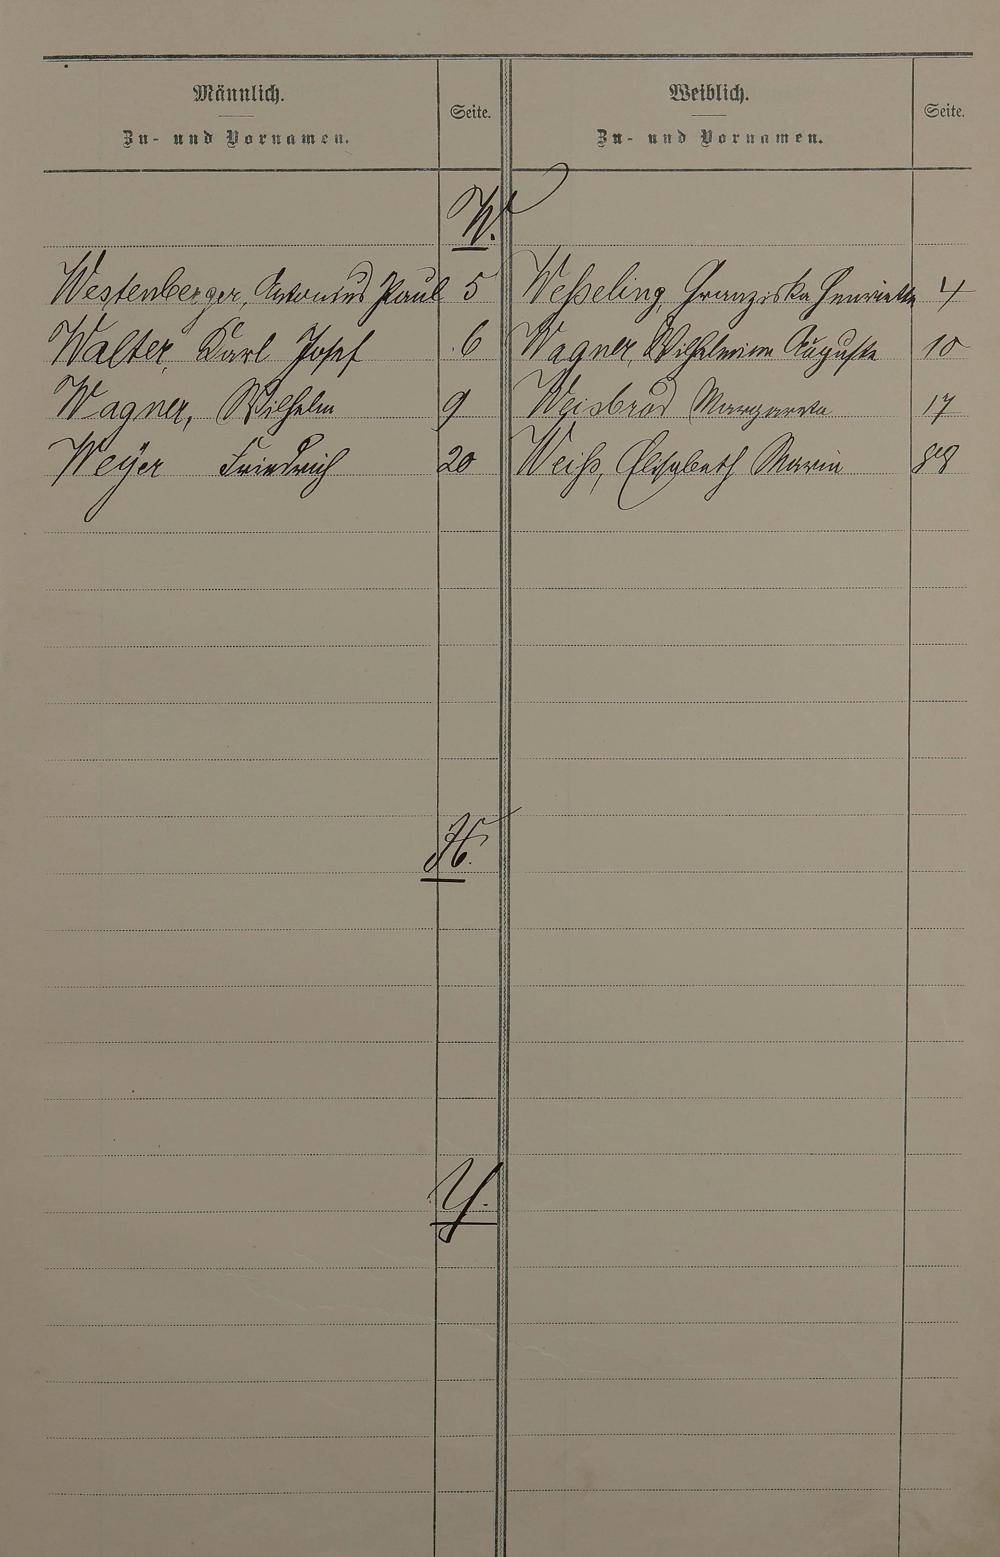 Männlich. Weiblich.
Zu- und Vornamen. Seite. Zu- und Vornamen. Seite.
W.
Westenberger, Antonius Paul 5 Weßeling, Franziska Henriette 4
Walter, Karl Josef 6 Wagner, Wilhelmine Auguste 10
Wagner, Wilhelm 9 Weisbrod Margareta 17
Weÿer Friedrich 20 Weiß, Elisabeth Maria
X.
Y.